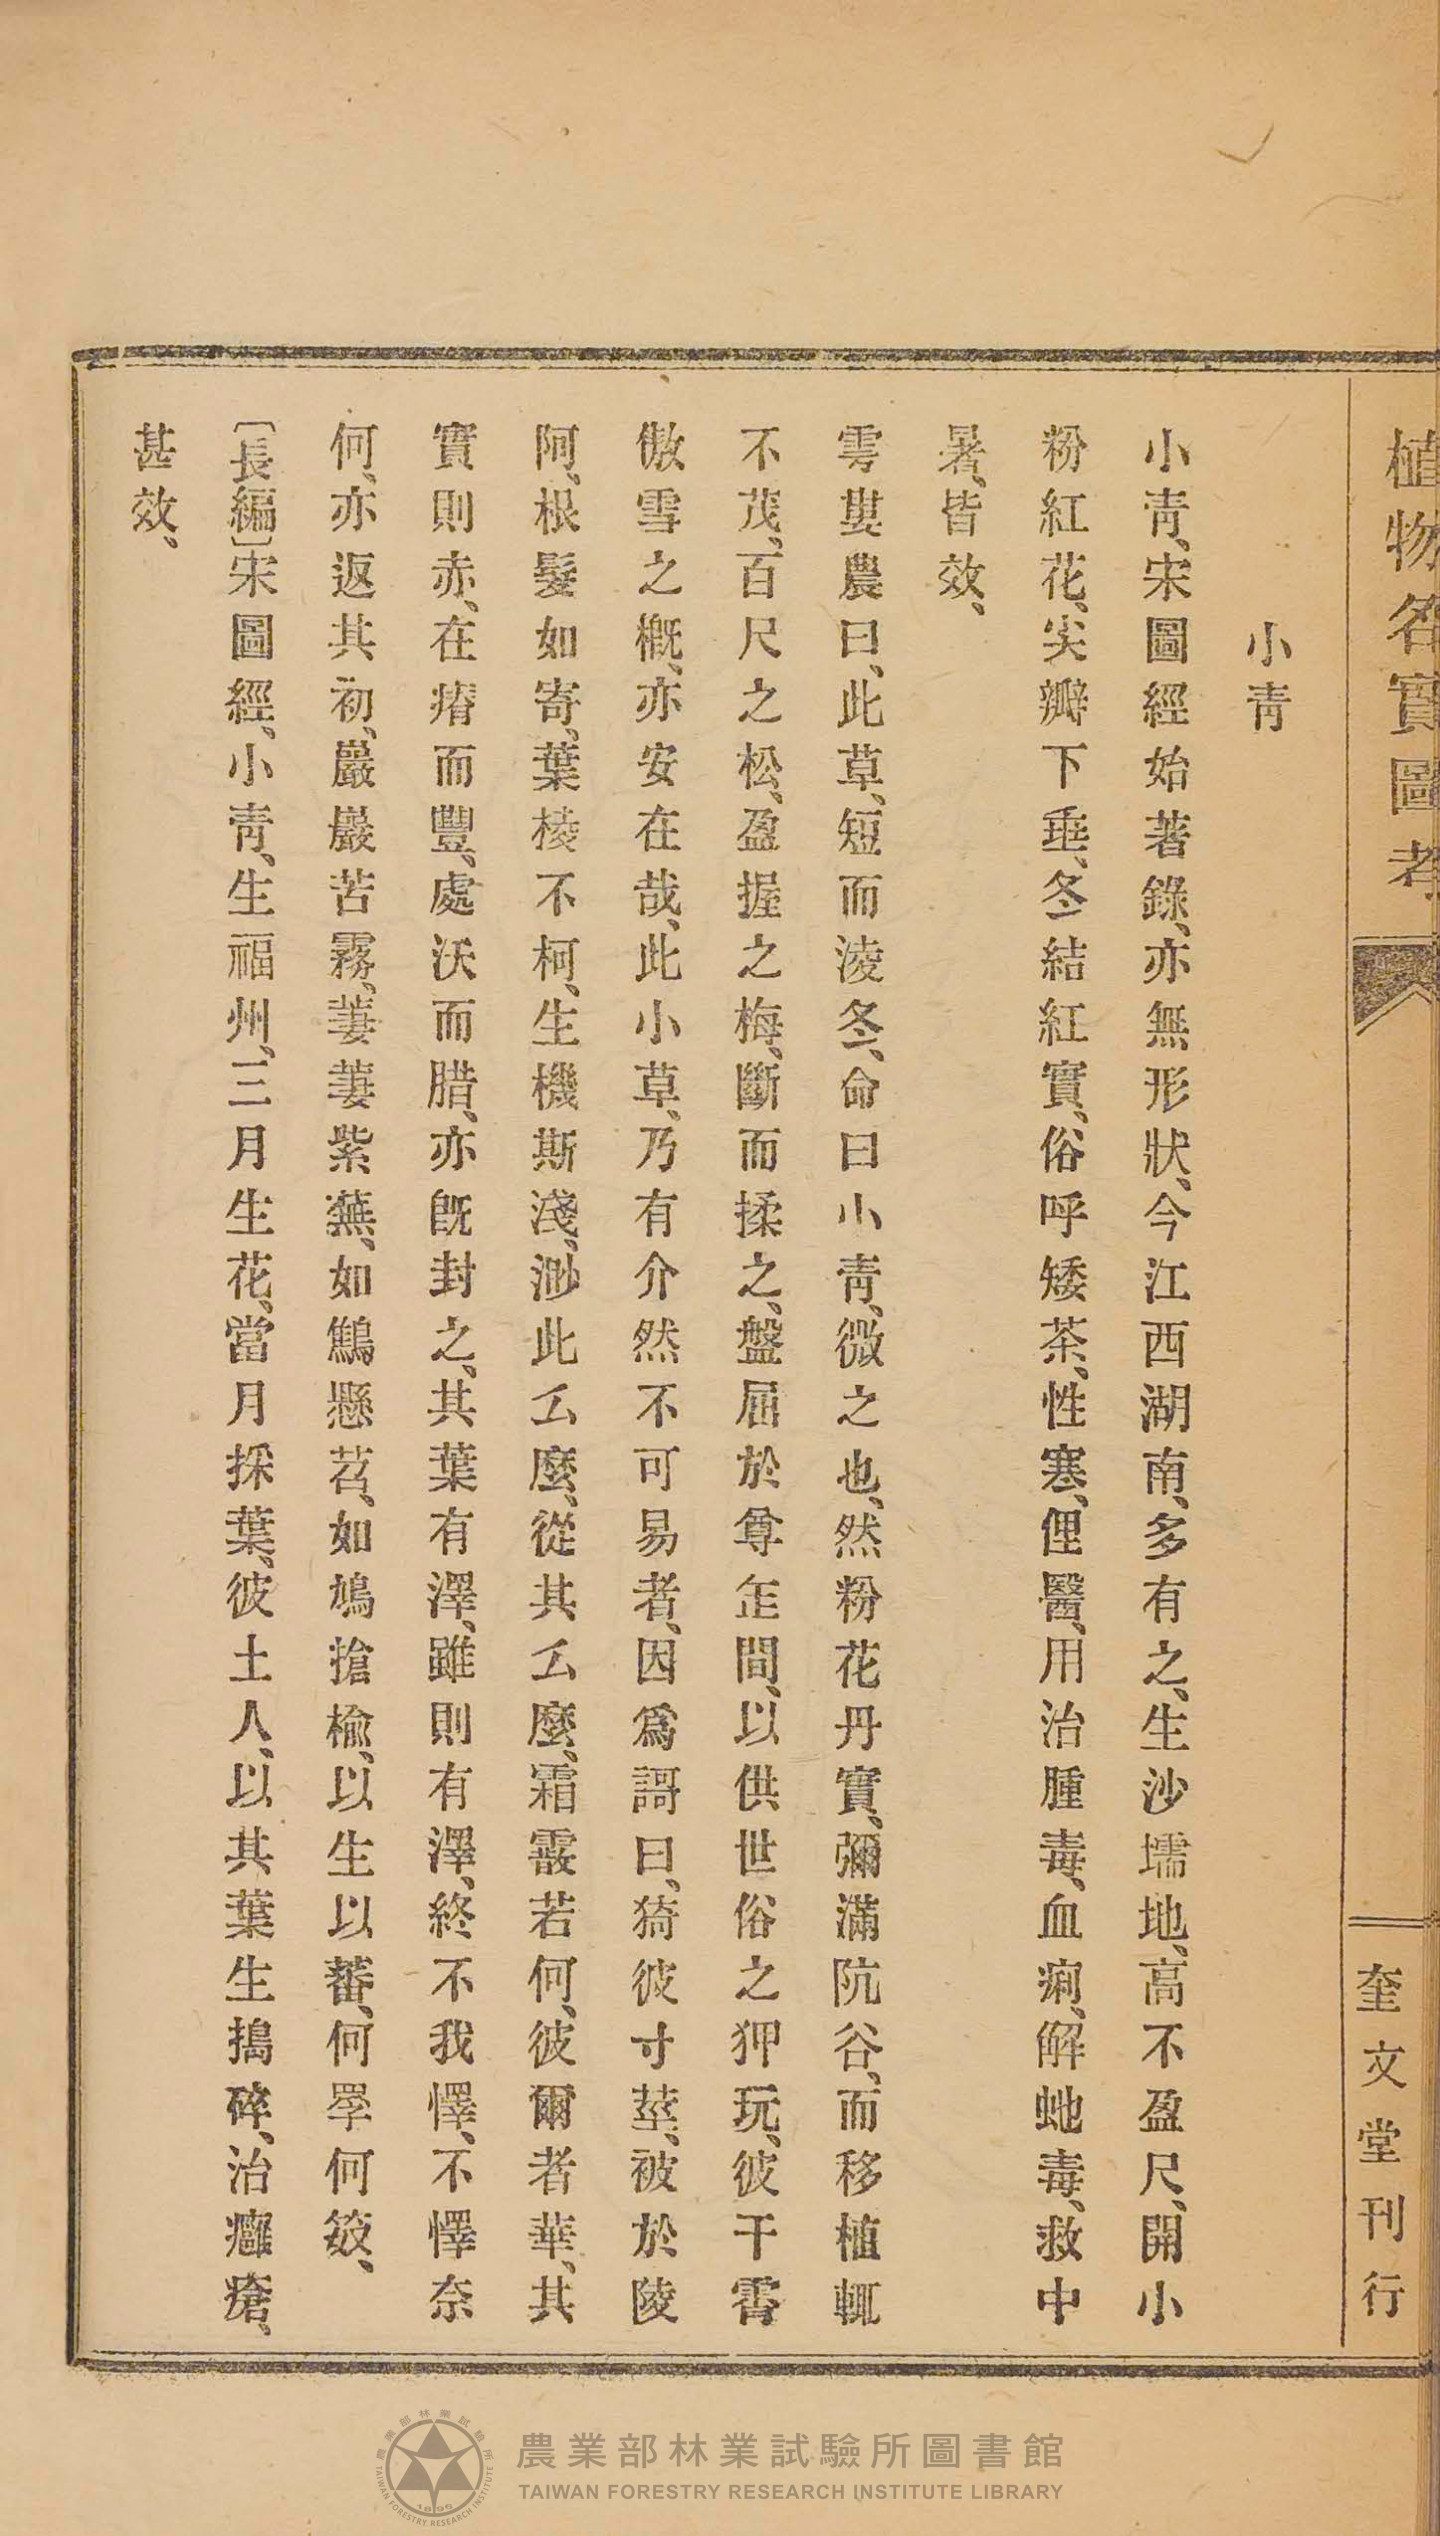 植物名實圖考
奎文堂刊行
小靑
小靑、宋圖經始著錄、亦無形狀、今江西湖南、多有之、生沙壖地、高不盈尺、開小
粉紅花、尖瓣下垂、冬結紅實、俗呼矮茶、性寒、俚醫、用治腫毒、血痢、解虵毒、救中
暑、皆效、
雩婁農曰、此草、短而淩冬、命曰小靑、微之也、然粉花丹實、彌滿阬谷、而移植輒
不茂、百尺之松、盈握之梅、斷而揉之、盤屈於尊缶間、以供世俗之狎玩、彼干霄
傲雪之槪、亦安在哉、此小草、乃有介然不可易者、因爲謌曰、猗彼寸莖、被於陵
阿、根髮如寄、葉棱不柯、生機斯淺、渺此么麼、從其么麼、霜霰若何、彼爾者華、其
實則赤、在瘠而豐、處沃而腊、亦旣封之、其葉有澤、雖則有澤、終不我懌、不懌奈
何、亦返其初、巖巖苦霧、萋萋紫蕪、如鷦懸苕、如鳩搶楡、以生以蕃、何罦何笯、
〔長編〕宋圖經、小靑、生福州、三月生花、當月採葉、彼土人、以其葉生搗碎、治癰瘡、
甚效、
農業部林業試驗所圖書館
TAIWAN FORESTRY RESEARCH INSTITUTE LIBRARY
農業部林業試驗所
TAIWAN FORESTRY RESEARCH INSTITUTE
1896